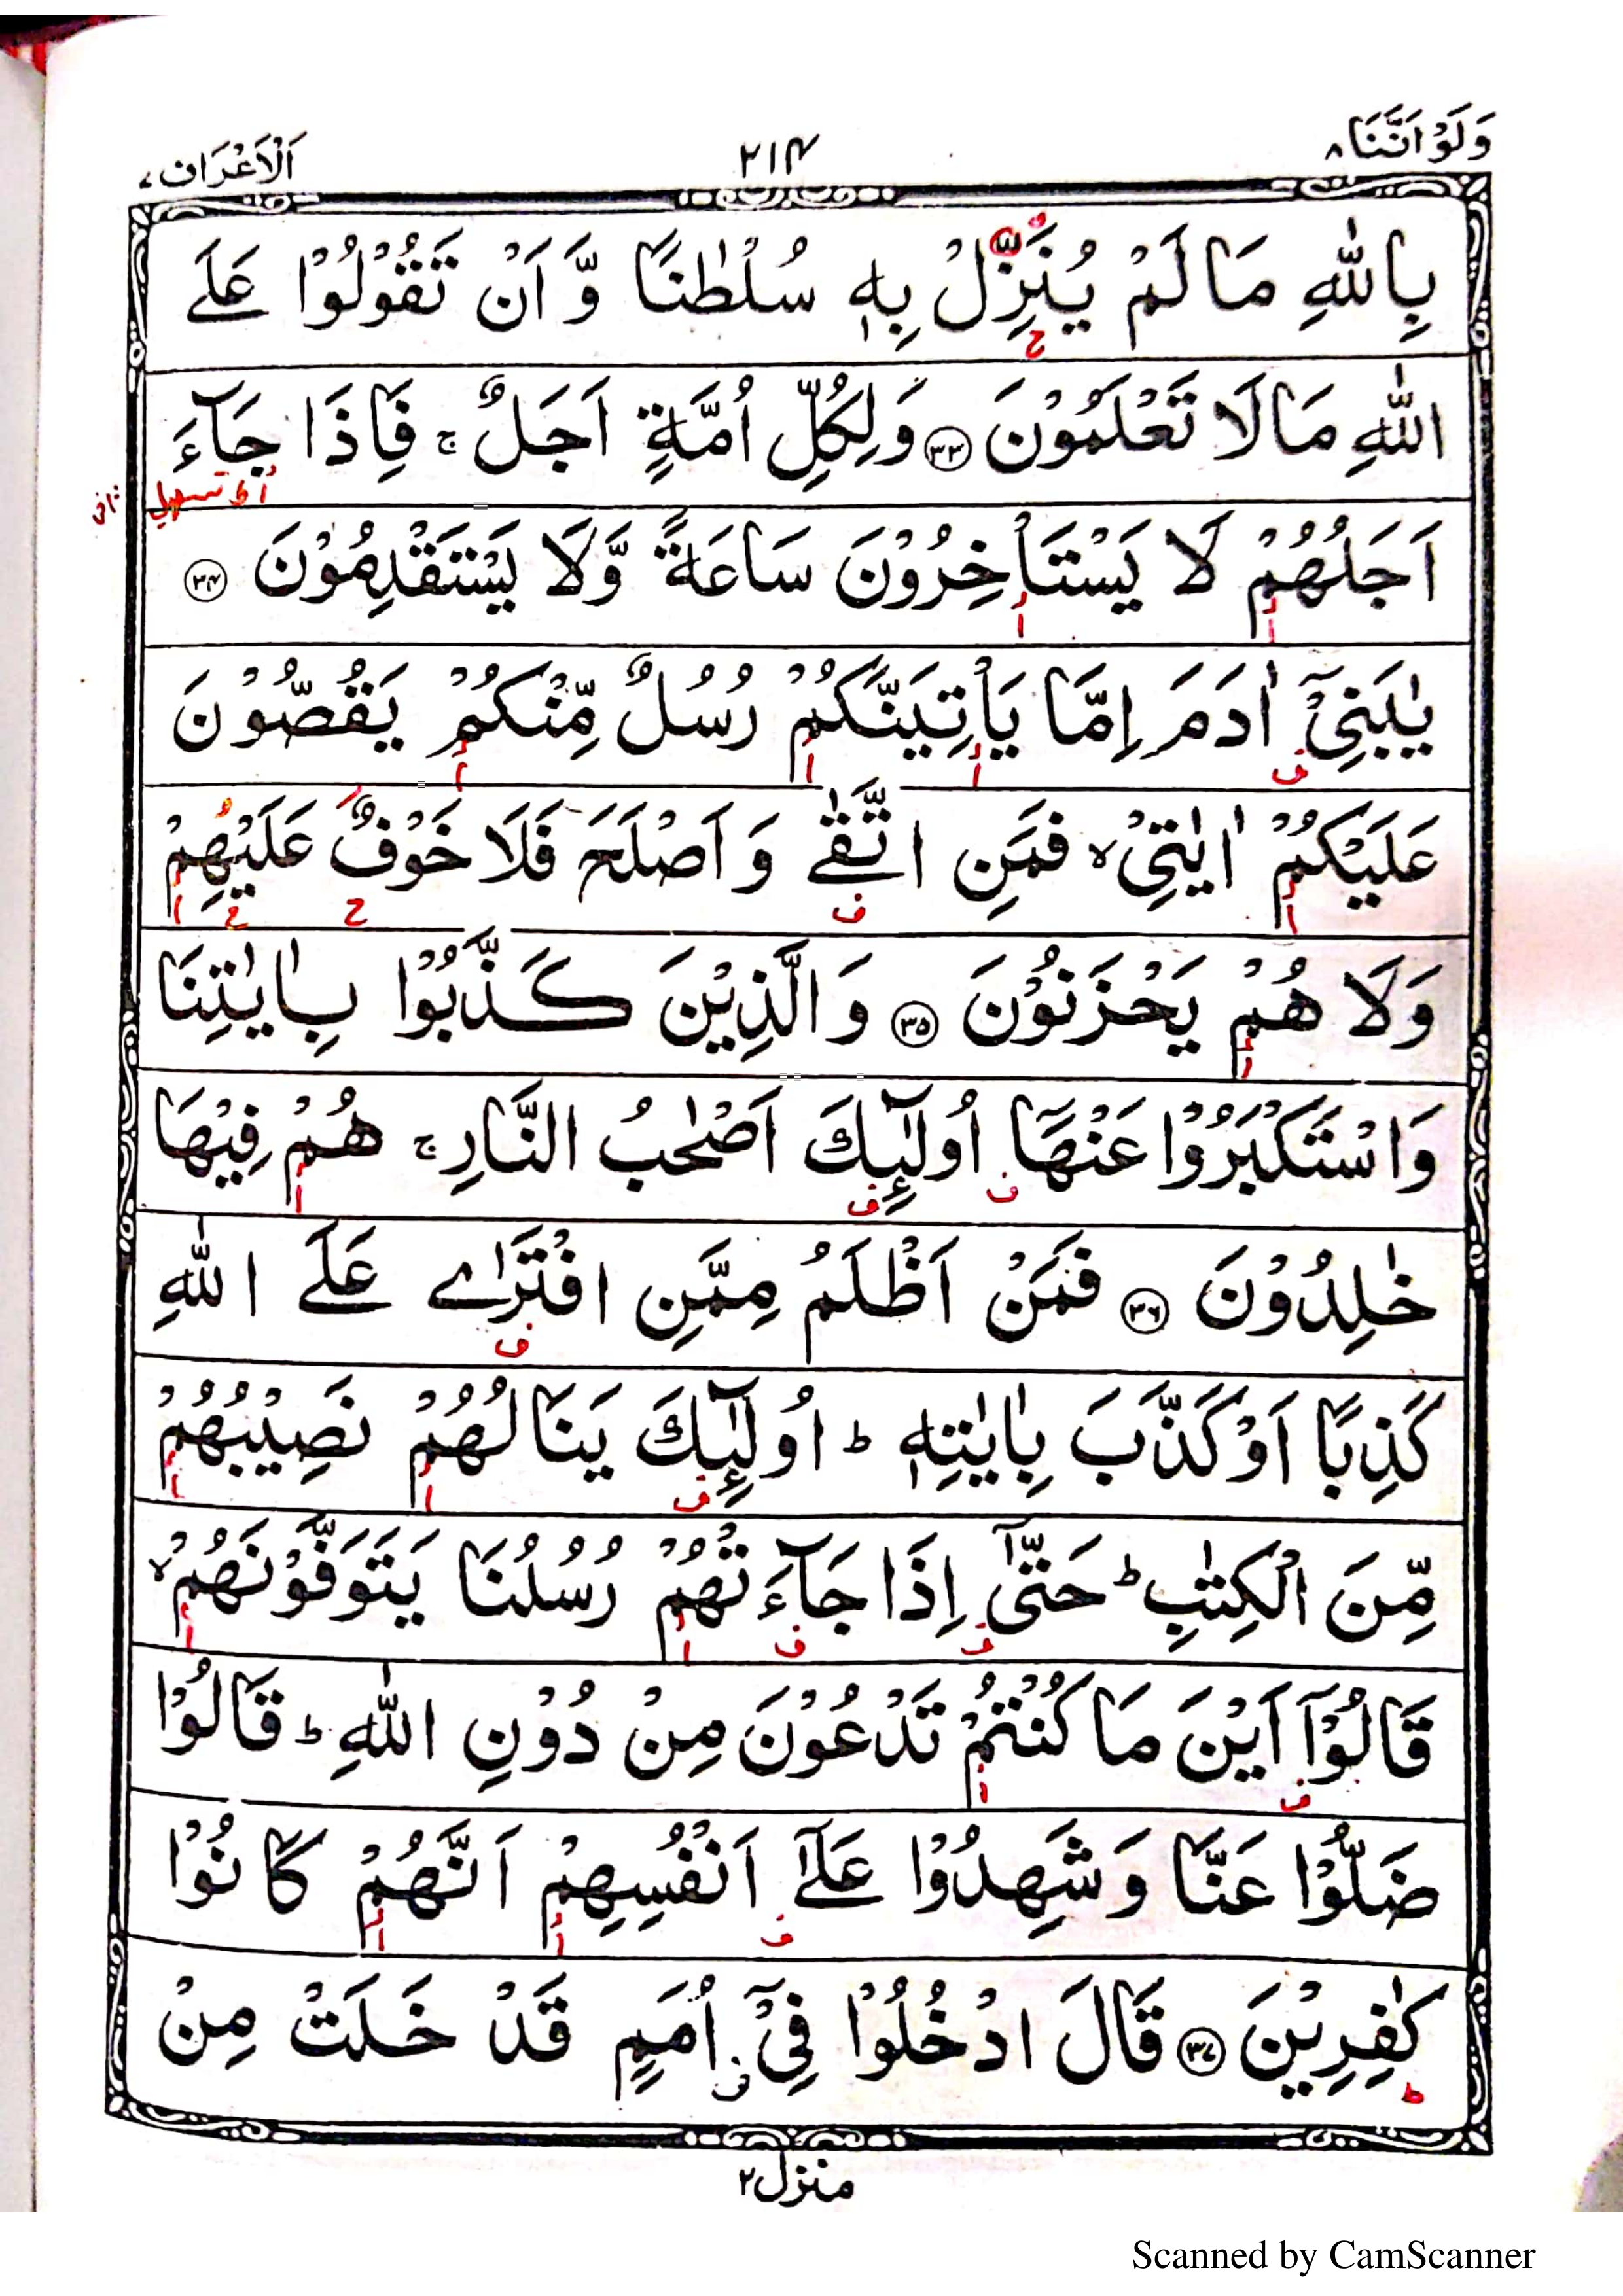 وَلَوْ اَنَّنَا ٨
٢١٤
اَلْاَعْرَاف ٧
بِاللّٰهِ مَا لَمْ يُنَزِّلْ بِهٖ سُلْطٰنًا وَّ اَنْ تَقُوْلُوْا عَلَى
اللّٰهِ مَا لَا تَعْلَمُوْنَ ﴿٣٣﴾ وَلِكُلِّ اُمَّةٍ اَجَلٌ ۚ فَاِذَا جَآءَ
اَجَلُهُمْ لَا يَسْتَاْخِرُوْنَ سَاعَةً وَّلَا يَسْتَقْدِمُوْنَ ﴿٣٤﴾
يٰبَنِيْٓ اٰدَمَ اِمَّا يَاْتِيَنَّكُمْ رُسُلٌ مِّنْكُمْ يَقُصُّوْنَ
عَلَيْكُمْ اٰيٰتِيْ ۙ فَمَنِ اتَّقٰى وَ اَصْلَحَ فَلَا خَوْفٌ عَلَيْهِمْ
وَلَا هُمْ يَحْزَنُوْنَ ﴿٣٥﴾ وَالَّذِيْنَ كَذَّبُوْا بِاٰيٰتِنَا
وَاسْتَكْبَرُوْا عَنْهَآ اُولٰٓئِكَ اَصْحٰبُ النَّارِ ۚ هُمْ فِيْهَا
خٰلِدُوْنَ ﴿٣٦﴾ فَمَنْ اَظْلَمُ مِمَّنِ افْتَرٰى عَلَى اللّٰهِ
كَذِبًا اَوْ كَذَّبَ بِاٰيٰتِهٖ ؕ اُولٰٓئِكَ يَنَالُهُمْ نَصِيْبُهُمْ
مِّنَ الْكِتٰبِ ؕ حَتّٰىٓ اِذَا جَآءَتْهُمْ رُسُلُنَا يَتَوَفَّوْنَهُمْ ۙ
قَالُوْٓا اَيْنَ مَا كُنْتُمْ تَدْعُوْنَ مِنْ دُوْنِ اللّٰهِ ؕ قَالُوْا
ضَلُّوْا عَنَّا وَ شَهِدُوْا عَلٰٓى اَنْفُسِهِمْ اَنَّهُمْ كَانُوْا
كٰفِرِيْنَ ﴿٣٧﴾ قَالَ ادْخُلُوْا فِيْٓ اُمَمٍ قَدْ خَلَتْ مِنْ
منزل ٢
Scanned by CamScanner